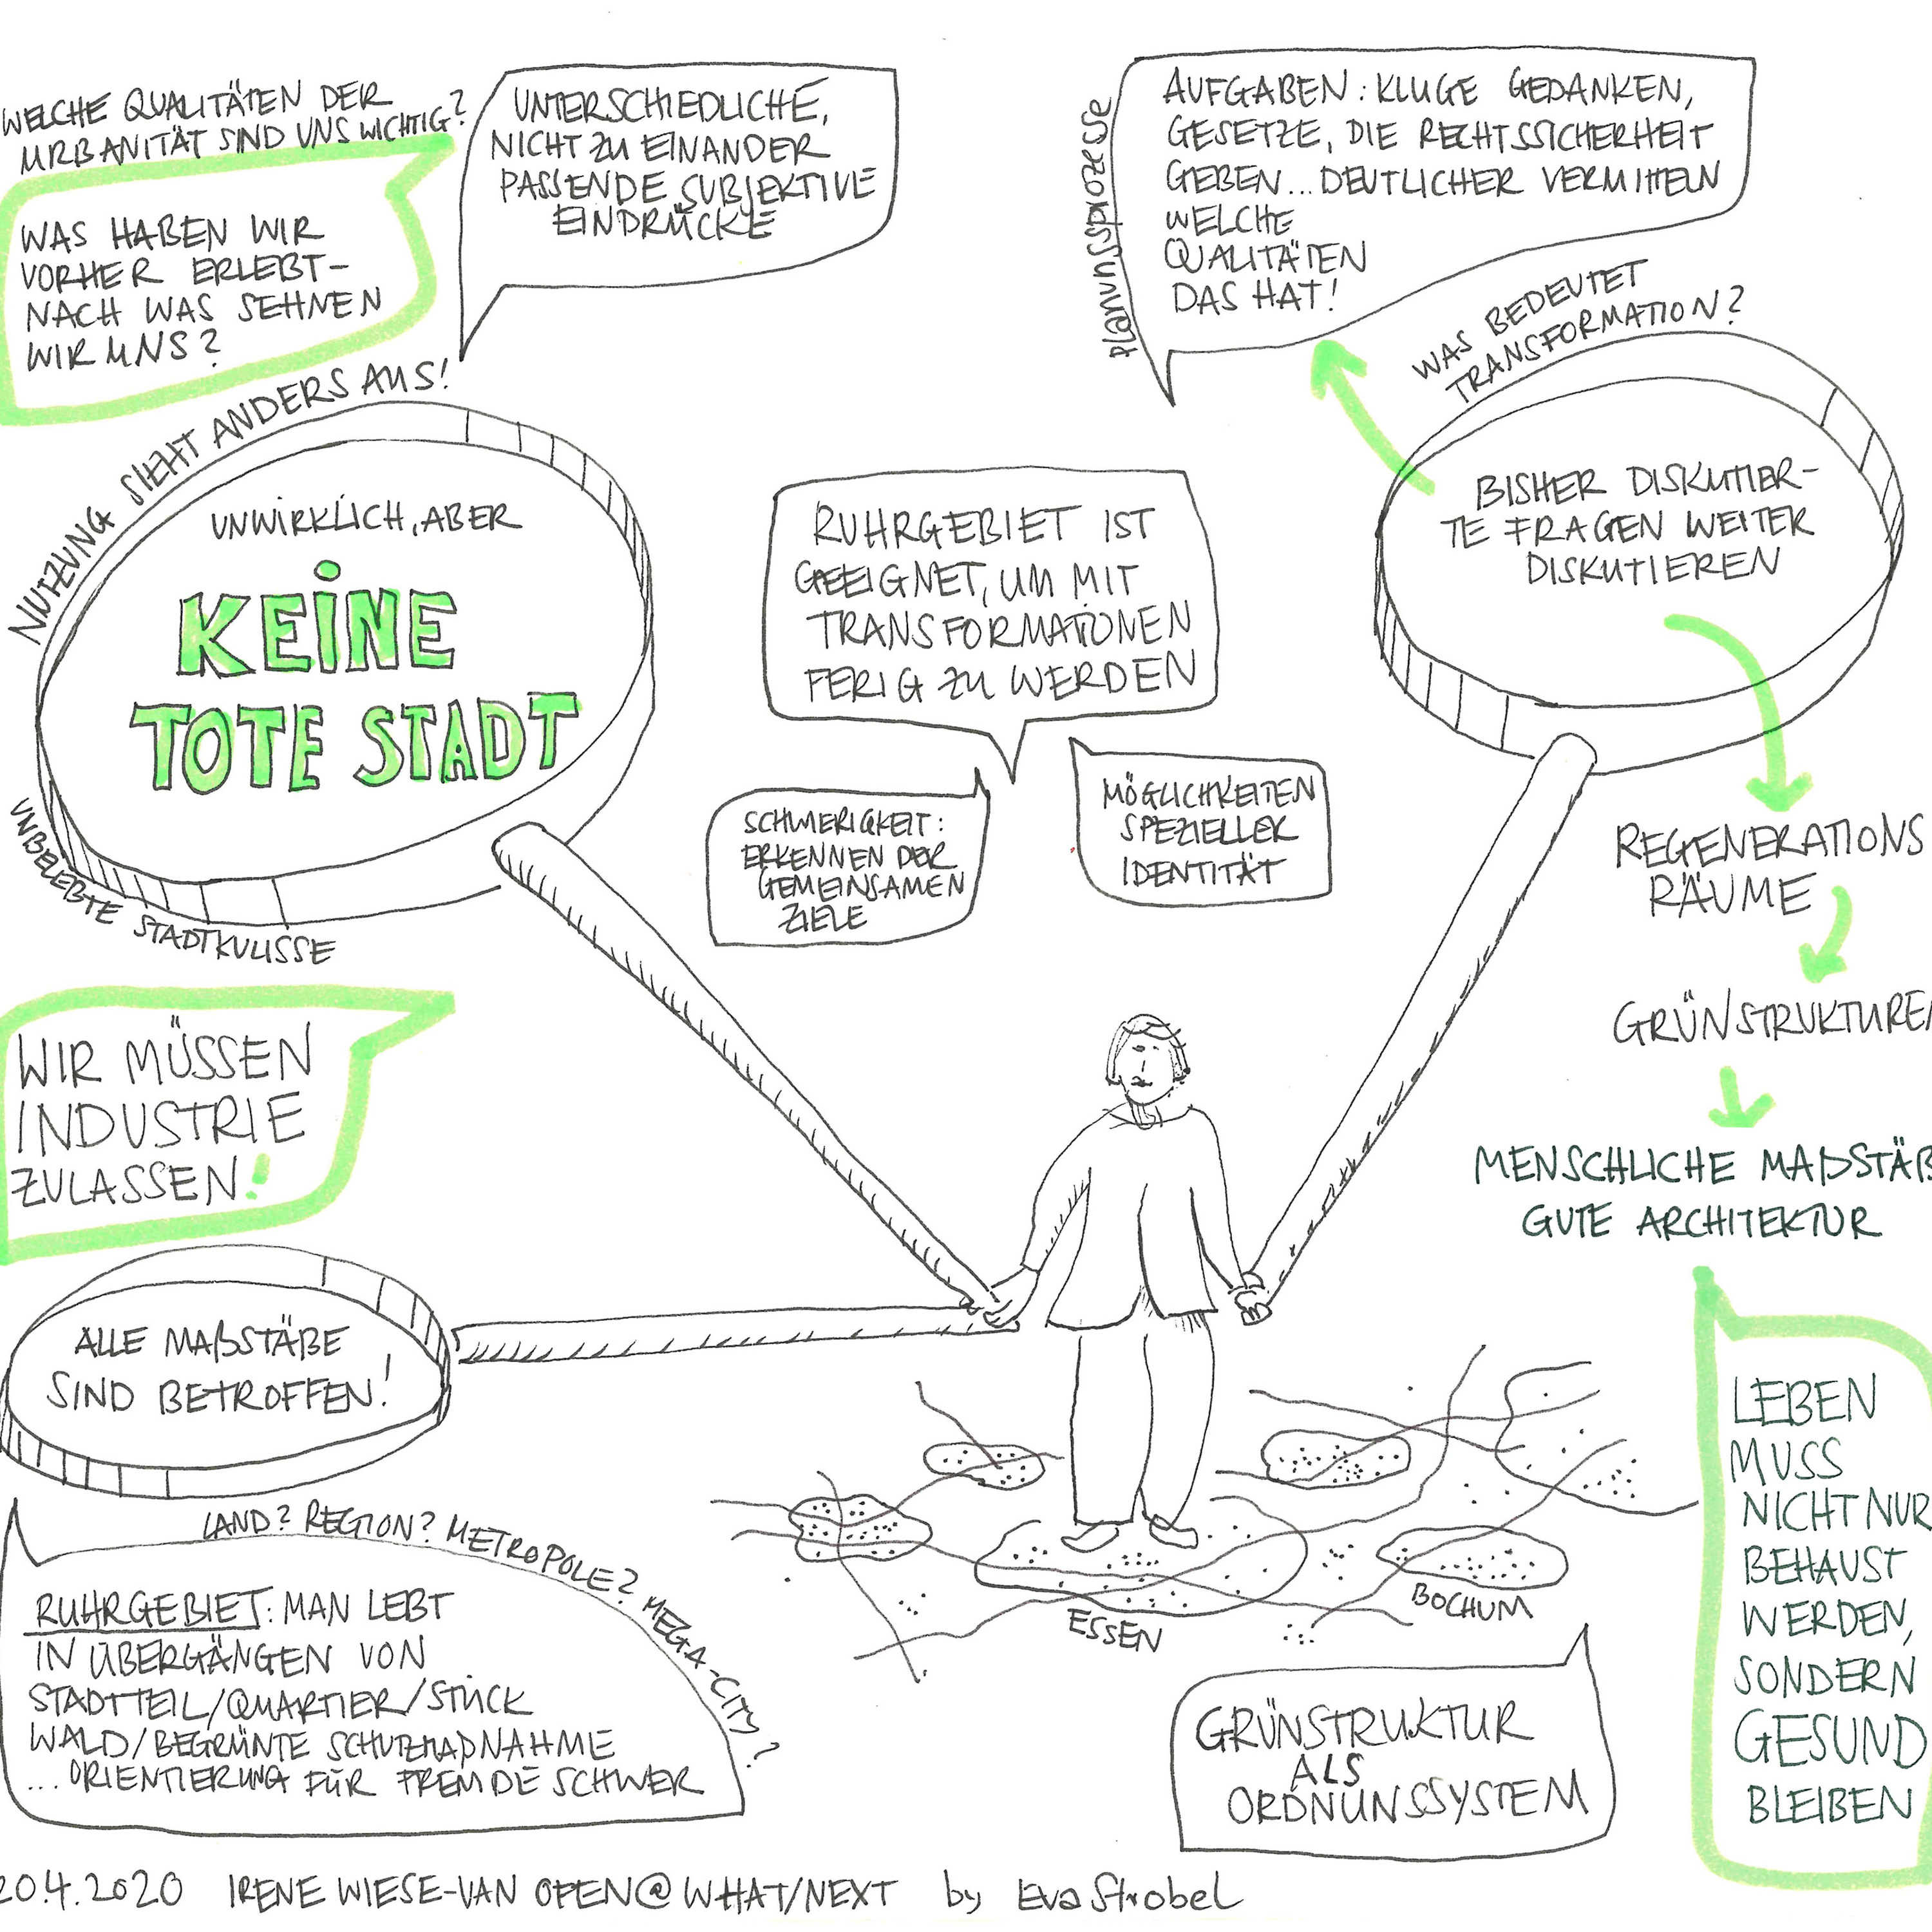 WELCHE QUALITÄTEN DER
URBANITÄT SIND UNS WICHTIG?
WAS HABEN WIR
VORHER ERLEBT-
NACH WAS SEHNEN
WIR UNS?
UNTERSCHIEDLICHE,
NICHT ZU EINANDER
PASSENDE SUBJEKTIVE
EINDRÜCKE
Planunsprozesse
AUFGABEN: KLUGE GEDANKEN,
GESETZE, DIE RECHTSSICHERHEIT
GEBEN... DEUTLICHER VERMITTELN
WELCHE
QUALITÄTEN
DAS HAT!
WAS BEDEUTET
TRANSFORMATION?
NUTZUNG SIEHT ANDERS AUS!
UNWIRKLICH, ABER
KEINE
TOTE STADT
UNBELEBTE STADTKULISSE
RUHRGEBIET IST
GEEIGNET, UM MIT
TRANSFORMATIONEN
FERIG ZU WERDEN
SCHWIERIGKEIT:
ERKENNEN DER
GEMEINSAMEN
ZIELE
MÖGLICHKEITEN
SPEZIELLER
IDENTITÄT
BISHER DISKUTIER-
TE FRAGEN WEITER
DISKUTIEREN
REGENERATIONS
RÄUME
GRÜNSTRUKTUREN
MENSCHLICHE MAßSTÄB
GUTE ARCHITEKTUR
LEBEN
MUSS
NICHT NUR
BEHAUST
WERDEN,
SONDERN
GESUND
BLEIBEN
WIR MÜSSEN
INDUSTRIE
ZULASSEN!
ALLE MAßSTÄBE
SIND BETROFFEN!
LAND? REGION? METROPOLE? MEGA-CITY?
RUHRGEBIET: MAN LEBT
IN ÜBERGÄNGEN VON
STADTTEIL/QUARTIER/STÜCK
WALD/BEGRÜNTE SCHUTZMAßNAHME
... ORIENTIERUNG FÜR FREMDE SCHWER
ESSEN
BOCHUM
GRÜNSTRUKTUR
ALS
ORDNUNSSYSTEM
20.4.2020 IRENE WIESE-VAN OFEN@WHAT/NEXT by Eva Strobel